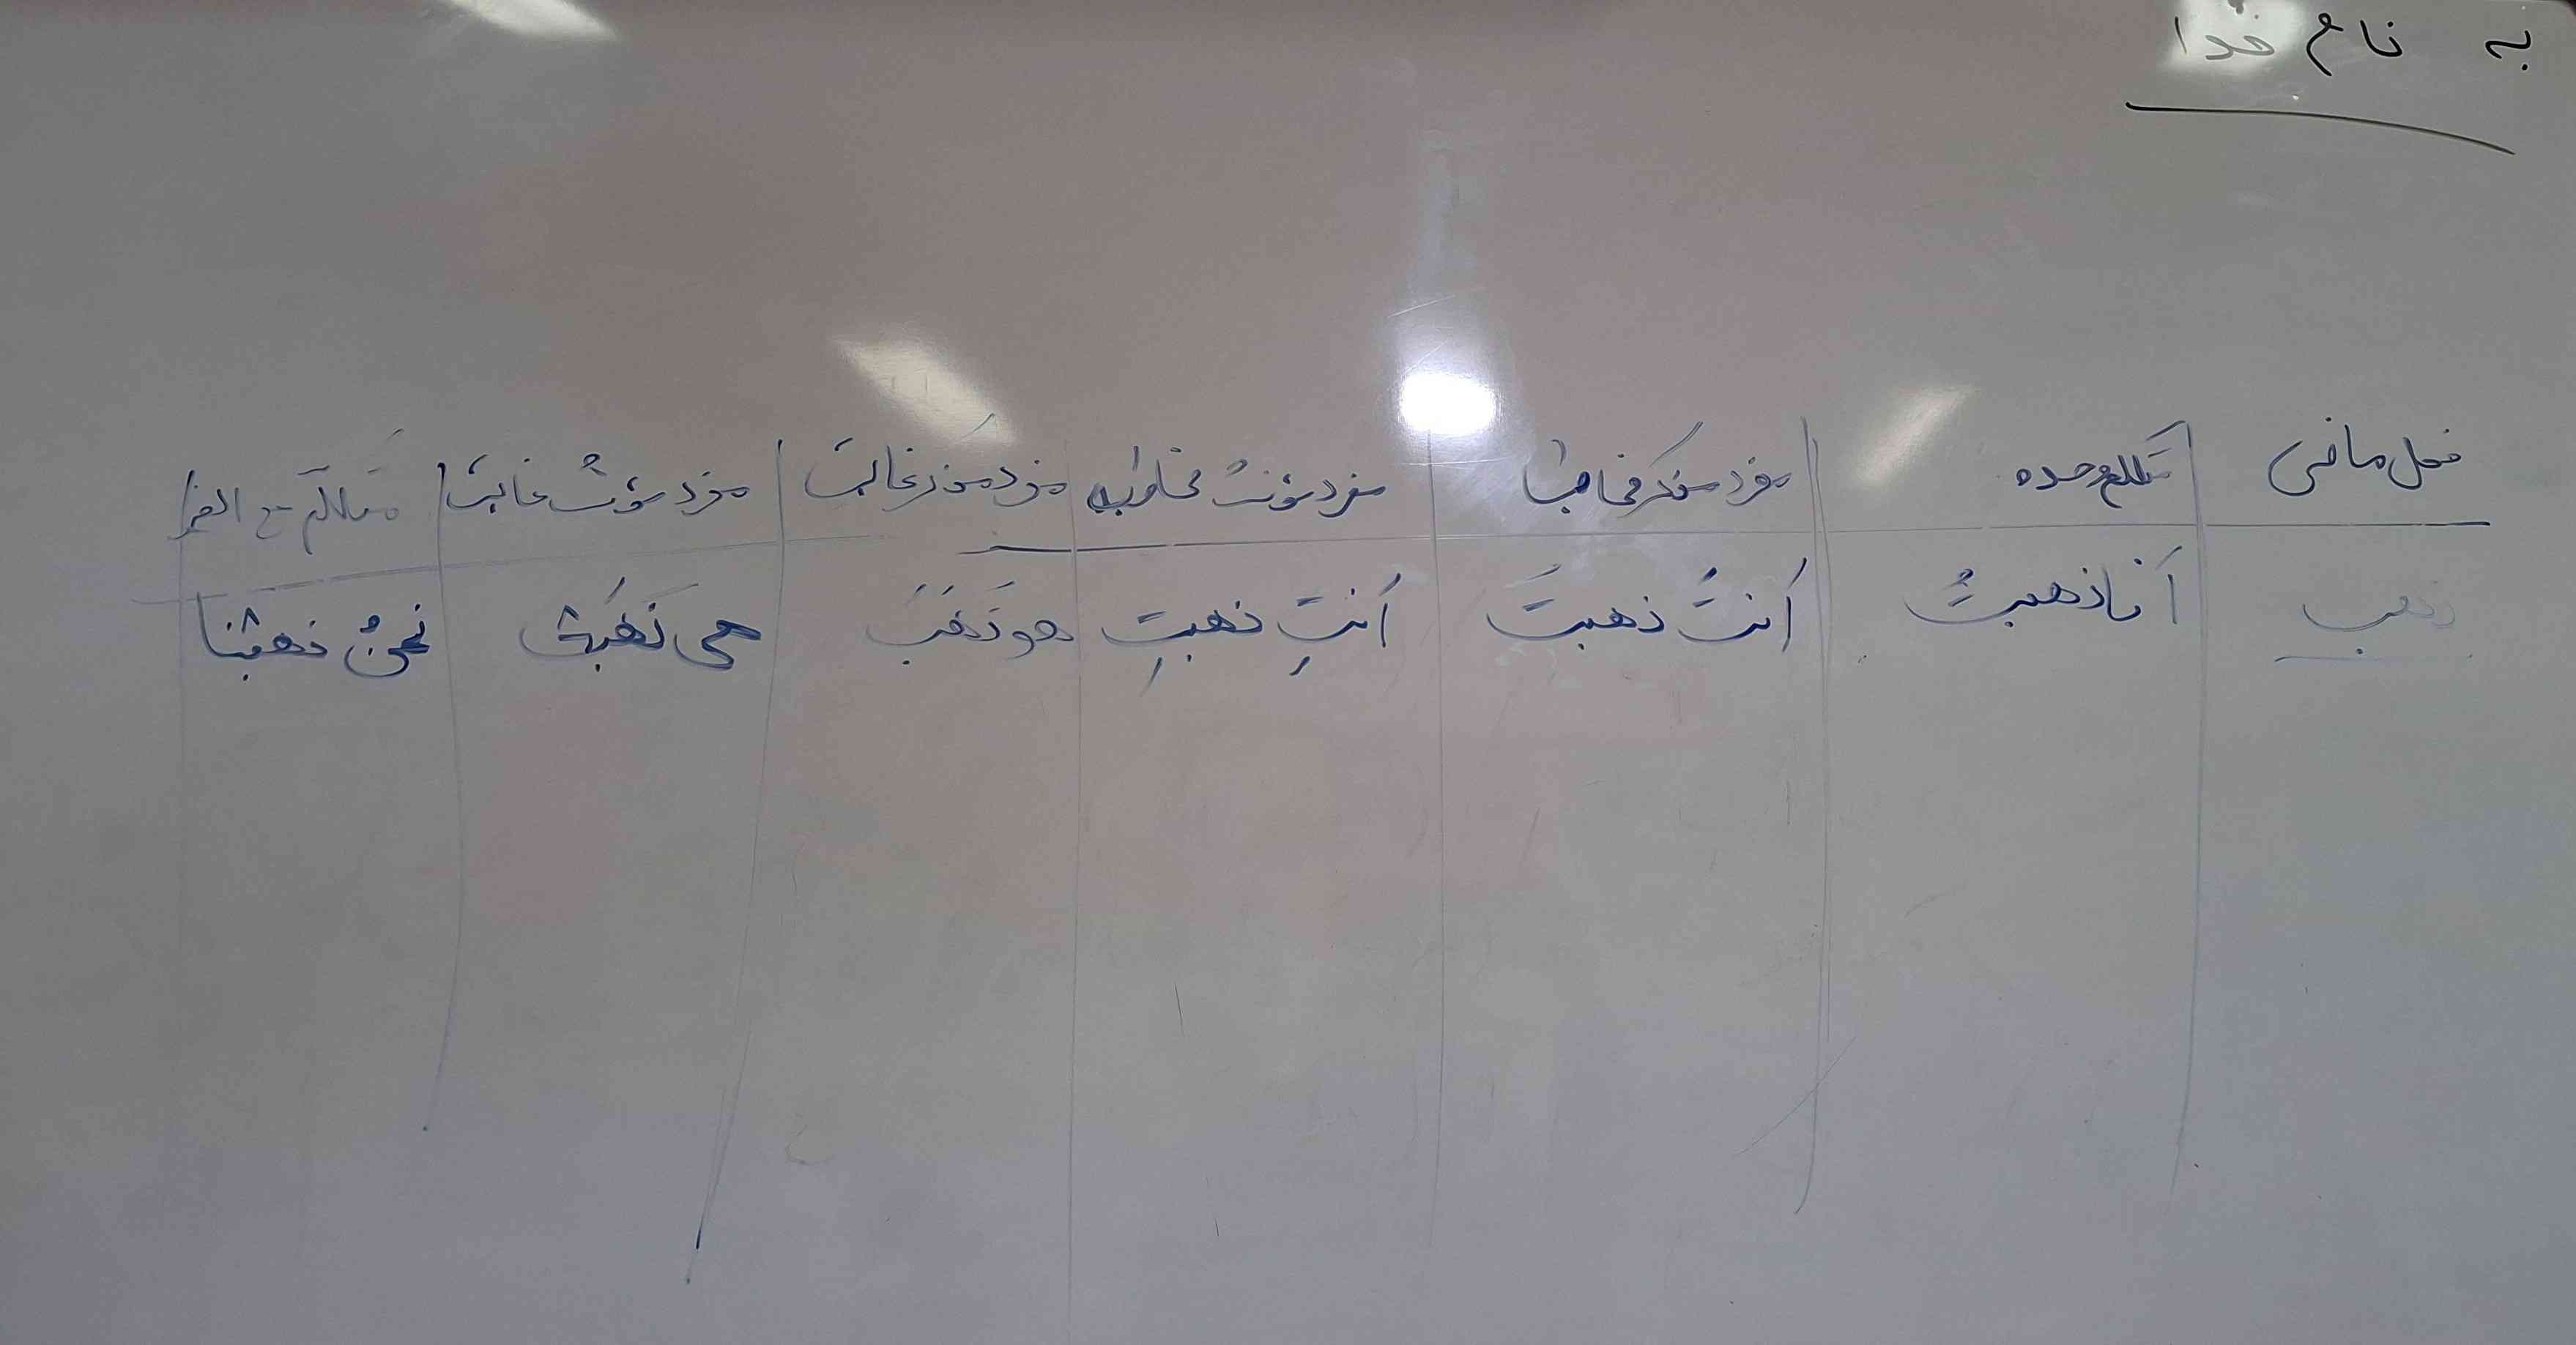 به نام خدا
فعل ماضی متکلم وحده مفرد مذکر مخاطب مفرد مؤنث مخاطبه مفرد مذکر غائب مفرد مؤنث غائب متکلم مع الغیر
ذهب أنا ذهبتُ أنتَ ذهبتَ أنتِ ذهبتِ هو ذَهَبَ هی ذَهَبَتْ نحنُ ذهبْنا